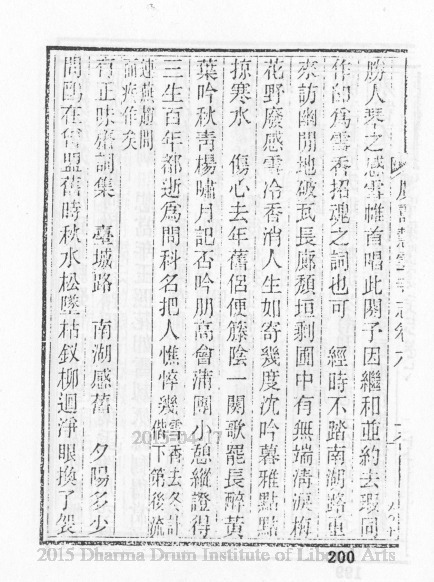 勝人琴之感雪帷首唱此闋予因繼和並約去瑕同
作卽爲雪香招魂之詞也可　經時不踏南湖路重
來訪幽閒地破瓦長廊頹垣剩圃中有無端淸淚梅
花野廢感雪冷香消人生如寄幾度沈吟暮雅點點
掠寒水　傷心去年舊侶便籐陰一闋歌罷長醉黃
葉吟秋靑楊嘯月記否吟朋高會蒲團小憩縱證得
三生百年都逝爲問科名把人憔悴幾雪香去冬計偕下第後流
連燕趙間而疾作矣
有正味齋詞集　臺城路　南湖感舊　夕陽多少
問鷗在曾盟舊時秋水松墜枯釵柳迴淨眼換了袈
200
2015 Dharma Drum Institute of Liberal Arts